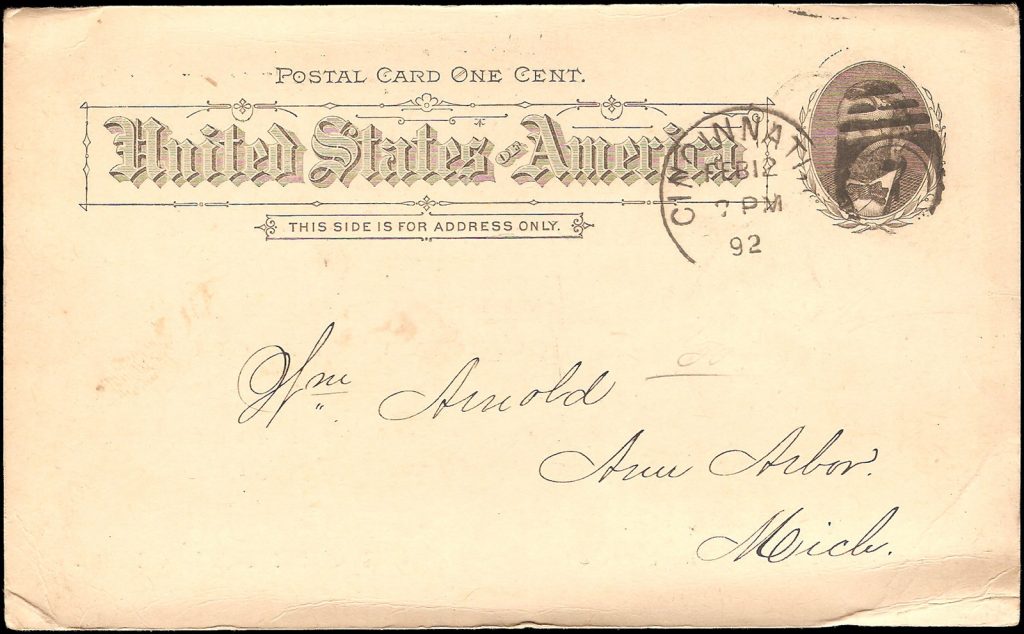 POSTAL CARD ONE CENT.
United States OF America
THIS SIDE IS FOR ADDRESS ONLY.
CINCINNATI
FEB 12
PM
92
Wm Arnold
Ann Arbor.
Mich.